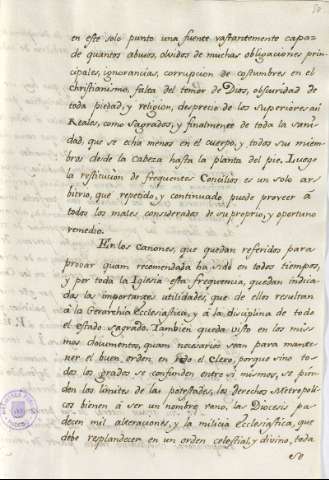 50
en este solo punto una fuente vastantemente capaz
de quantos abusos, olvidos de muchas obligaciones prin-
cipales, ignorancias, corrupcion de costumbres en el
christianismo, falta del temor de Dios, obscuridad de
toda piedad, y religion, desprecio de los Superiores asi
Reales, como Sagrados, y finalmente de toda la sani-
dad, que se echa menos en el cuerpo, y todos sus miem-
bros desde la cabeza hasta la planta del pie. Luego
la restitucion de frequentes Concilios es un solo ar-
bitrio, que repetido, y continuado puede proveer á
todos los males considerados de su proprio, y oportuno
remedio.
En los canones, que quedan referidos para
provar quam recomendada ha sido en todos tiempos,
y por toda la Iglesia esta frequencia, quedan indica-
das las importantes utilidades, que de ellos resultan
á la Gerarchia Ecclesiastica, y á la disciplina de todo
el estado Sagrado. Tambien queda visto en los mis-
mos documentos, quam necesarios sean para mante-
ner el buen orden en todo el Clero, porque sino to-
dos los grados se confunden entre si mismos, se pier-
den los limites de las potestades, los derechos Metropoli-
cos bienen á ser un nombre vano, las Diocesis pa-
decen mil alteraciones, y la milicia Ecclesiastica, que
debe resplandecer en un orden celestial, y divino, toda
se